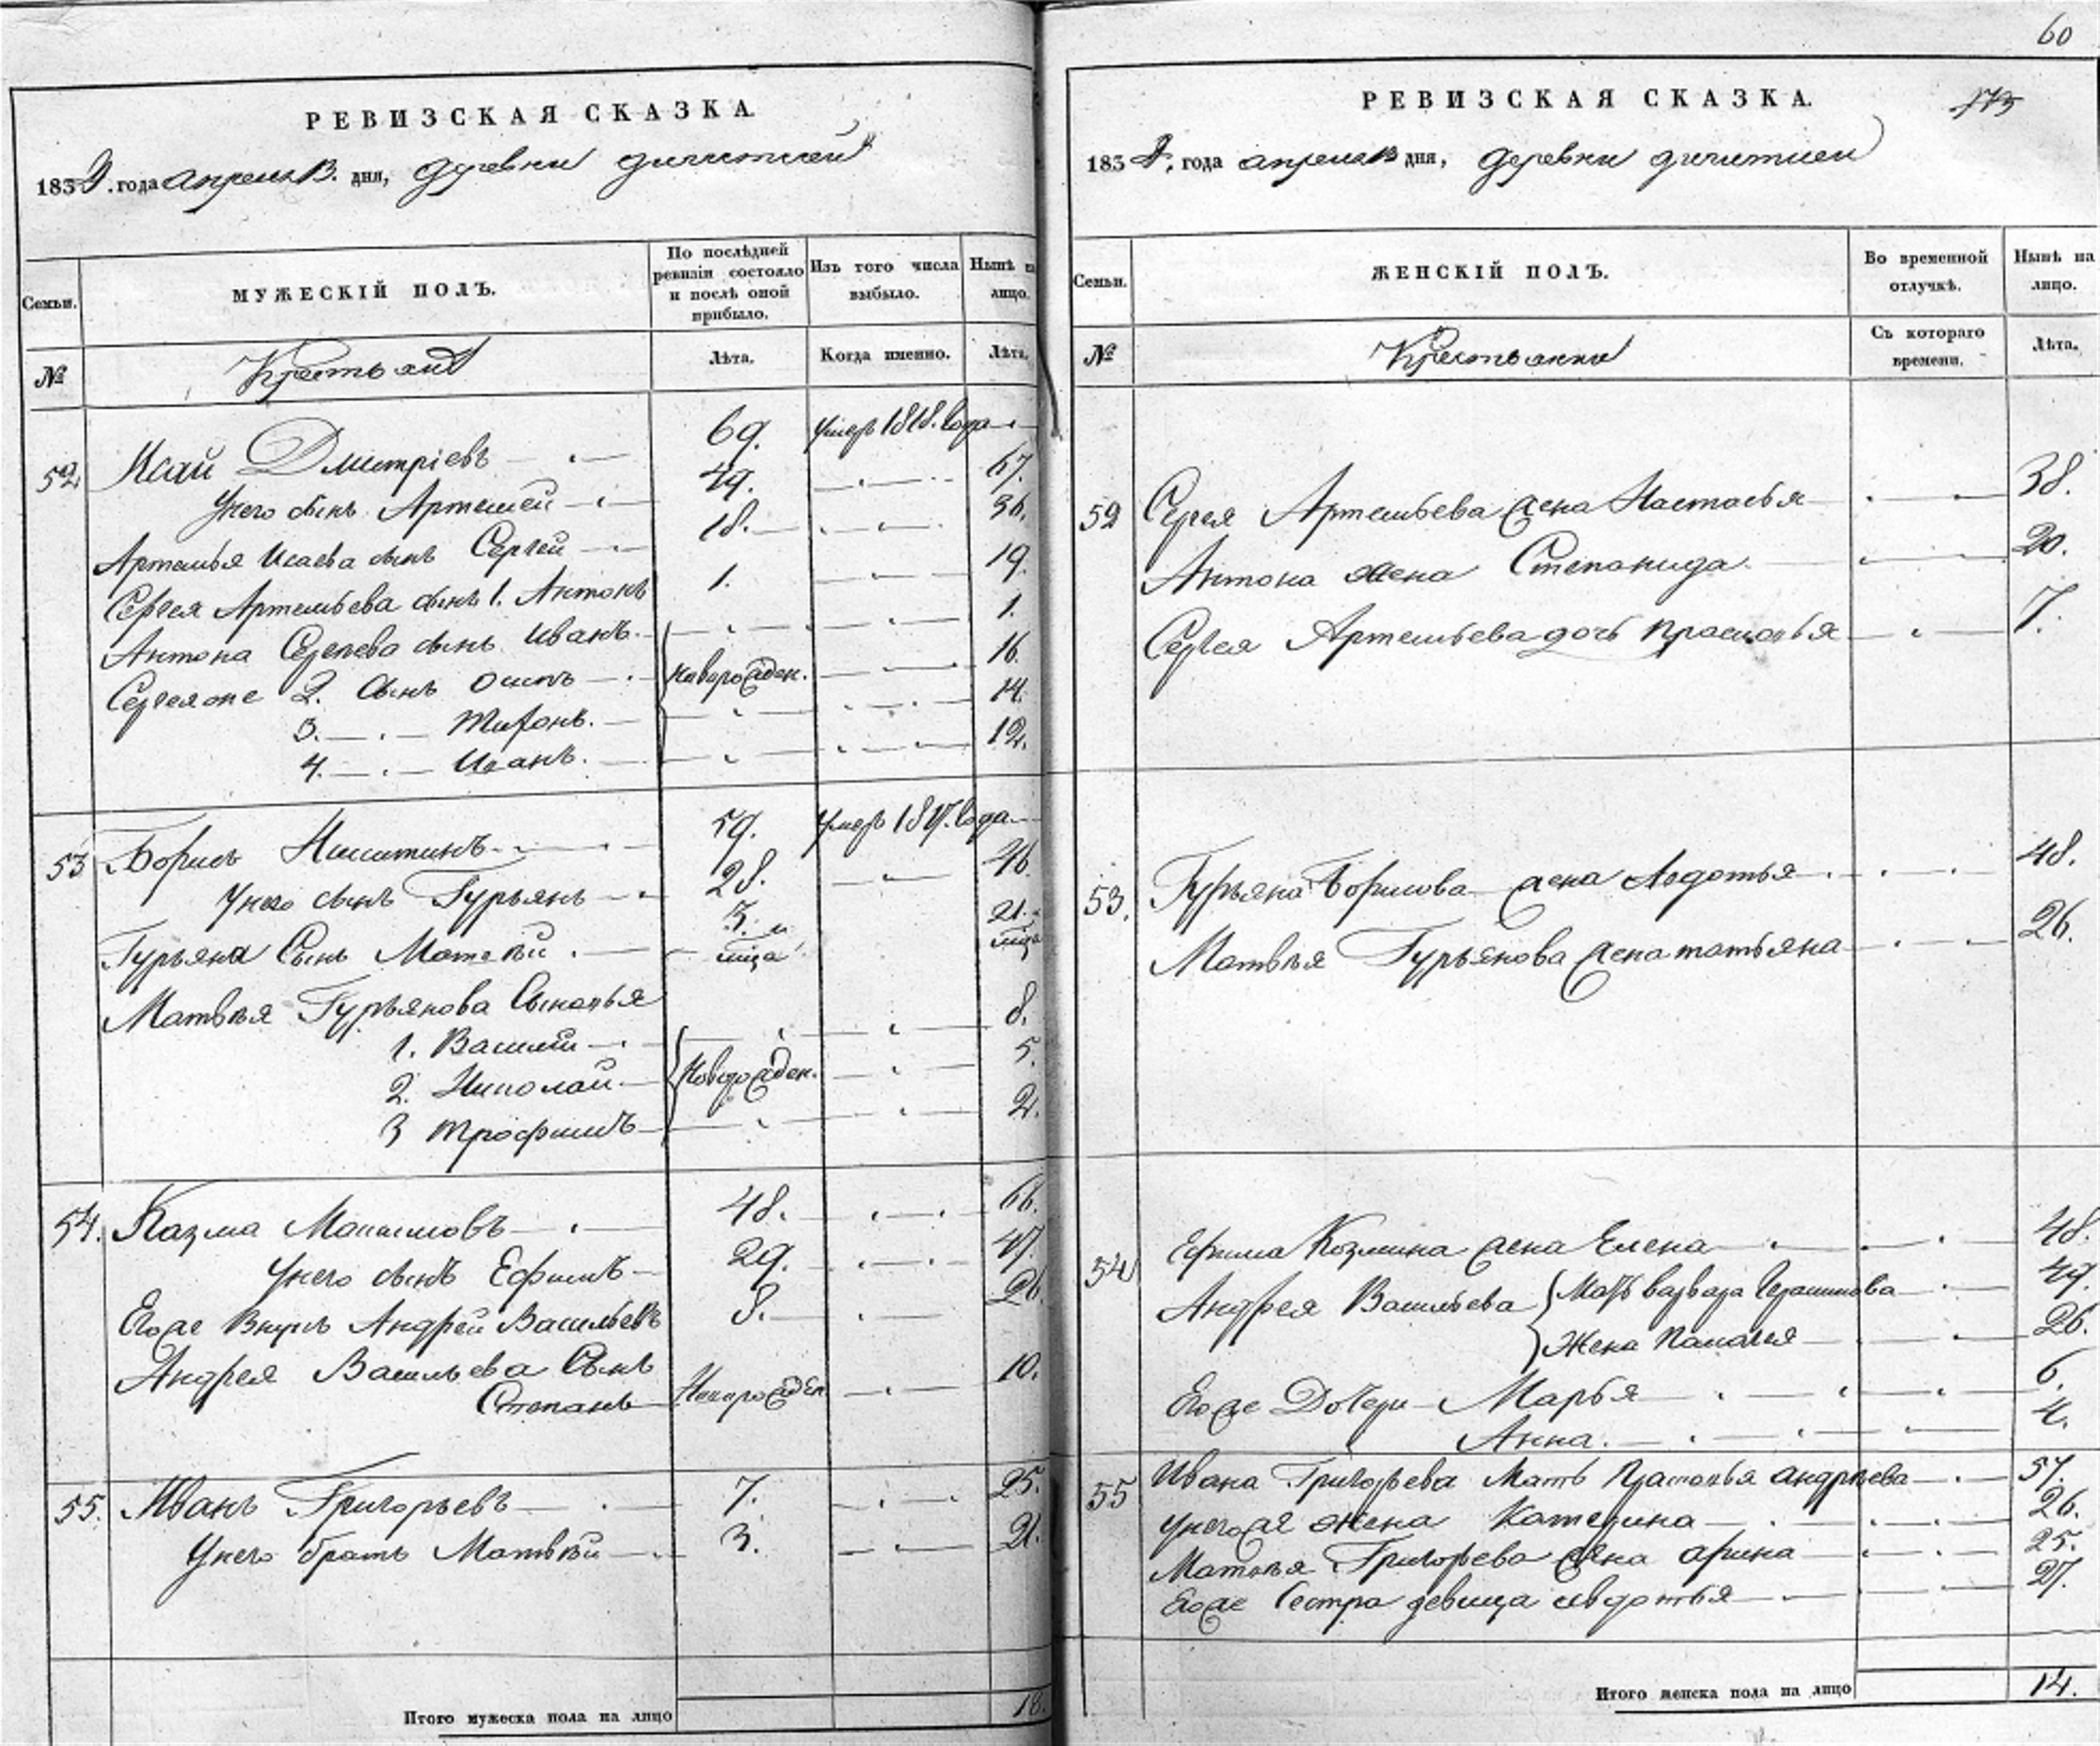 РЕВИЗСКАЯ СКАЗКА.
183 года апреля 13. дня, деревни
Семьи.
МУЖЕСКІЙ ПОЛЪ.
По послѣдней ревизіи состояло и послѣ оной прибыло.
Изъ того числа выбыло.
Нынѣ на лицо.
№
Крестьянъ
Лѣта.
Когда именно.
Лѣта.
52 Исай Дмитріевъ 69. умеръ 1818. года
Унего сынъ Артемей 49. 67.
Артемья Исаева сынъ Сергей 18. 36.
Сергея Артемьева сынъ 1. Антонъ 1. 19.
Антона Сергеева сынъ Иванъ. 1.
Сергея же 2. сынъ Осипъ новорожден. 16.
3. Тихонъ. 14.
4. Иванъ. 12.
53 Борисъ Никитинъ 59. умеръ 1817. года
Унего сынъ Гурьянъ 28. 46.
Гурьяна Сынъ Матвѣй 3. м 21.
Матвѣя Гурьянова Сыновья
1. Василий 8.
2. Николай новорожден. 5.
3 Трофимъ 2.
54. Казма Максимовъ 48. 66.
Унего сынъ Ефимъ 29. 47.
Егоже Внукъ Андрей Васильевъ 8. 26.
Андрея Васильева Сынъ
Степанъ Новорожден 10.
55. Иванъ Григорьевъ 7. 25.
Унего братъ Матвѣй 3. 21.
Итого мужеска пола на лицо 18.
60
РЕВИЗСКАЯ СКАЗКА.
183 года апреля 13 дня, деревни
Семьи.
ЖЕНСКІЙ ПОЛЪ.
Во временной отлучкѣ.
Нынѣ на лицо.
№
Крестьянки
Съ котораго времени.
Лѣта.
52 Сергея Артемьева жена Настасья 38.
Антона жена Степанида 20.
Сергея Артемьева дочь Прасковья 7.
53. Гурьяна Борисова жена Авдотья 48.
Матвѣя Гурьянова жена татьяна 26.
54 Ефима Козмина жена Елена 48.
Андрея Васильева Мать варвара Герасимова 49.
Жена Палагея 26.
Егоже Дочери Марья 6.
Анна. 4.
55 Ивана Григорьева Мать андрѣева 57.
Унегоже жена Катерина 26.
Матвѣя Григорьева жена арина 25.
Егоже Сестра девица авдотья 27.
Итого женска пола на лицо 14.